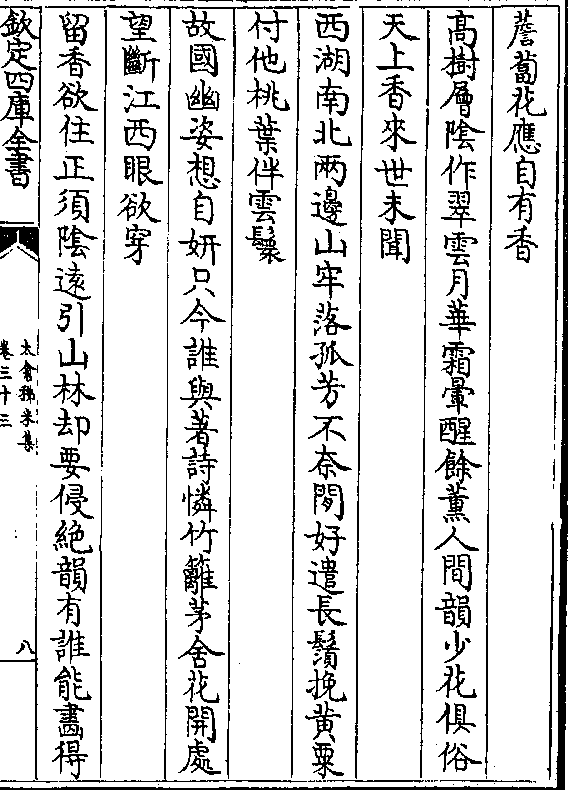 薝蔔花應自有香
高樹層陰作翠雲月華霜暈醒餘薰人間韻少花俱俗
天上香來世未聞
西湖南北兩邊山牢落孤芳不奈閒好遣長鬚挽黃粟
付他桃葉伴雲鬟
故國幽姿想自妍只今誰與著詩憐竹籬茅舍花開處
望斷江西眼欲穿
留香欲住正須陰遠引山林却要侵絶韻有誰能畵得
欽定四庫全書
太倉稊米集
卷三十三
八